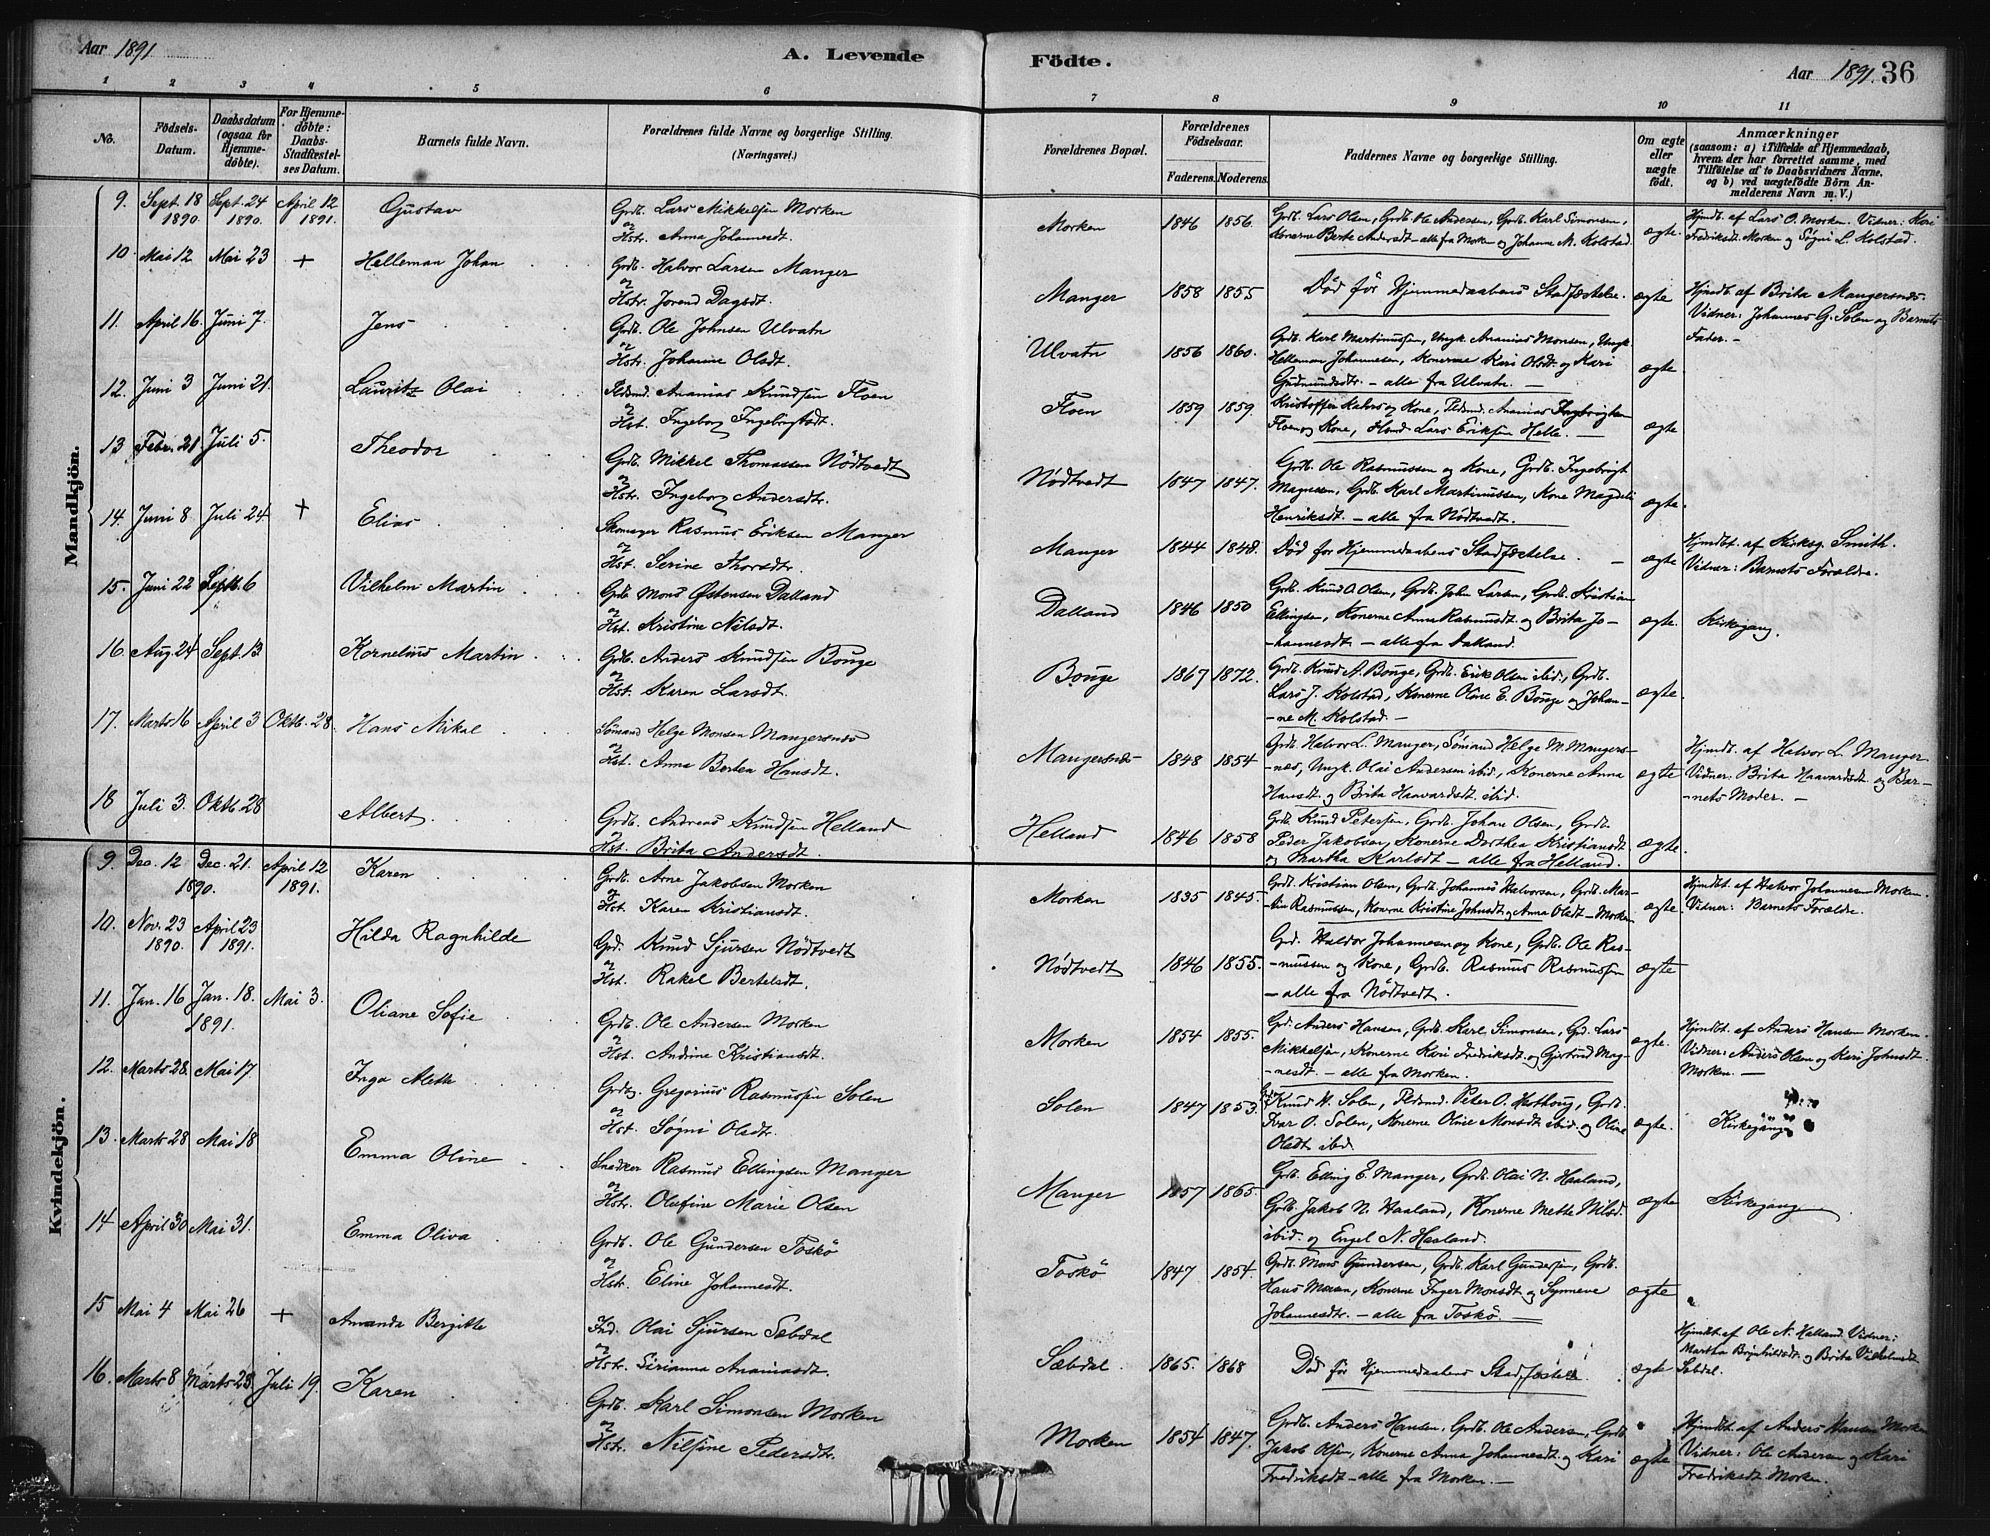 Aar 1891
A. Levende Födte.
Aar 1891. 36
1 2 3 4 5 6 7 8 9 10 11
No.
Födsels-Datum.
Daabsdatum (ogsaa for Hjemme-döbte).
For Hjemme-döbte: Daabs-Stadfæstel-ses Datum.
Barnets fulde Navn.
Forældrenes fulde Navne og borgerlige Stilling. (Næringsvei.)
Forældrenes Bopæl.
Forældrenes Födselsaar.
Faderens. Moderens.
Faddernes Navne og borgerlige Stilling.
Om ægte eller uægte födt.
Anmærkninger
(saasom: a) i Tilfælde af Hjemmedaab,
hvem der har forrettet samme, med
Tilföielse af to Daabsvidners Navne.
og b) ved uægtefödte Börn An-
melderens Navn m. V.)
Mandkjön.
9. Sept. 18 1890. Sept. 24 1890. April 12 1891. Gustav
Grdb. Lars Mikkelsen Morken
og Hstr. Anna Johannesdt.
Morken 1846 1856.
Grdb. Lars Olsen, Grdb. Ole Andersen, Grdb. Karl Simonsen,
Konerne Berte Andersdt - alle fra Morken og Johanne M. Kolstad.
ægte.
Hjmdt. af Lars O. Morken. Vidner: Kari
Fredriksdt. Morken og Søgni L. Kolstad.
10. Mai 12 Mai 23 + Helleman Johan
Grdb. Halvor Larsen Manger
og Hstr. Jorend Dagsdt.
Manger 1858 1855
Død før Hjemmedaabens Stadfæstelse.
ægte
Hjmdt. af Brita Mangersnes.
Vidner: Johannes G. Solen og Barnets
Fader. -
11. April 16. Juni 7. Jens
Grdb. Ole Johnsen Ulvatn
og Hstr. Johanne Olsdt.
Ulvatn 1856 1860.
Grdb. Karl Martinussen, Ungk. Ananias Monsen, Ungk.
Helleman Johannesen, Konerne Kari Olsdt. og Kari
Gudmundsdtr. - alle fra Ulvatn. -
ægte.
12. Juni 3 Juni 21. Lauritz Olai
Pldsmd. Ananias Knudsen Floen
og Hst. Ingeborg Ingebrigtsdt.
Floen 1859 1859.
Kristoffer og Kone, Pldsmd. Ananias Ingebrigtsen
Floen og Kone, Lars Eriksen Helle. -
ægte
13 Febr. 21. Juli 5. Theodor
Grdb. Mikkel Thomassen Nödtvedt
og Hstr. Ingeborg Andersdtr.
Nödtvedt 1847 1847.
Grdb. Ole Rasmussen og Kone, Grdb. Ingebrigt
Magnesen, Grdb. Karl Martinussen, Kone Magdeli
Henriksdt. - alle fra Nödtvedt.
ægte.
14. Juni 8 Juli 24. + Elias
Skomager Rasmus Eriksen Manger
og Hst. Serine Thorsdtr.
Manger 1844 1848.
Død før Hjemmedaabens Stadfæstelse. -
ægte
Hjmdbt. af Kirksg. Smith.
Vidner: Barnets Forældre.
15. Juni 22 Sept. 6 Vilhelm Martin
Grdb Mons Østensen Dalland
og Hst. Kristine Nilsdt.
Dalland 1846 1850
Grdb. Knud O. Olsen, Grdb. John Larsen, Grdb. Kristian
Ellingsen, Konerne Anna Rasmusdt. og Brita Jo-
hannesdt - alle fra Dalland.
ægte.
Kirkegang.
16. Aug. 24 Sept. 13. Kornelius Martin
Grdb. Anders Knudsen Bouge
og Hst. Karen Larsdt.
Bouge 1867 1872.
Grdb. Knud A. Bouge, Grdb. Erik Olsen ibid, Grdb.
Lars J. Kolstad, Konerne Oline E. Bouge og Johan-
-ne M. Kolstad. -
ægte
17. Marts 16 April 3 Oktb. 28. Hans Mikal
Sömand Helge Monsen Mangersnes
og Hst. Anna Bertea Hansdt.
Mangersnes 1848 1854
Grdb Halvor L. Manger, Sömand Helge M. Mangers-
-nes, Ungk. Olai Andersen ibid, Konerne Anna
Hansdt. og Brita Haavardsdt. ibid.
ægte
Hjmdt. af Halvor L. Manger
Vidner: Brita Haavardsdt. og Bar-
-nets Moder. -
18 Juli 3. Oktb. 28 Albert
Grdb. Andreas Knudsen Helland
og Hst. Brita Andersdt.
Helland 1846 1858
Grdb Knud Petersen, Grdb. Johan Olsen, Grdb.
Peder Jakobsen, Konerne Dorthea Kristiansdt
og Martha Karlsdt - alle fra Helland.
ægte.
Kvindekjön.
9. Dec. 12 1890. Dec. 21. April 12 1891. Karen
Grdb. Arne Jakobsen Morken
og Hst. Karen Kristiansdt.
Morken 1835 1845.
Grdb. Kristian Olsen, Grdb. Johannes Halvorsen, Grdb. Mar-
tin Rasmussen, Konerne Kristine Johnsdt. og Anna Olsdt - Morken
ægte.
Hjmdbt. af Halvor Johannesen Morken.
Vidner: Barnets Forældre.
10. Nov. 23 1890. April 23 1891. Hilda Ragnhilde
Grd. Knud Sjursen Nödtvedt
og Hst. Rakel Bertelsdt.
Nödtvedt 1846 1855.
Grd. Haldor Johannesen og Kone, Grdb. Ole Ras-
-mussen og Kone, Grdb. Rasmus Rasmussen
- alle fra Nödtvedt.
ægte
11. Jan. 16 Jan. 18. 1891. Mai 3. Oliane Sofie
Grdb. Ole Andersen Morken
og Hst. Andine Kristiansdt.
Morken 1854 1855.
Grd. Anders Hansen, Grdb. Karl Simonsen, Grd. Lars
Mikkelsen, Konerne Kari Fredriksdt. og Gjertrud Mag-
-nesdt. - alle fra Morken.
ægte.
Hjmdbt. af Anders Hansen Morken.
Vidner: Anders Olsen og Kari Johnsdt.
Morken. -
12. Marts 28. Mai 17. Inga Alette
Grdbg. Gregorius Rasmussen Solen
og Hst. Søgni Olsdtr.
Solen 1847 1853.
Grd. Knud N. Solen, Pldsmd. Peter O. , Grdb.
Ivar O. Solen, Konerne Oline Monsdt. ibid. og Oline
Olsdt ibid.
ægte.
Kirkegang
13. Marts 28 Mai 18 Emma Oline
Snedker Rasmus Ellingsen Manger
og Hstr. Olufine Marie Olsen
Manger 1857 1865.
Grdb. Elling E. Manger, Grdb. Olai N. Haaland,
Grdb. Jakob N. Haaland, Konerne Mette Nilsd.
ibid. og Engel N. Haaland.
ægte
Kirkegang
14 April 30 Mai 31. Emma Oliva
Grdb. Ole Gundersen Toskö
og Hstr. Eline Johannesdt.
Toskö 1847 1854.
Grdb. Mons Gundersen, Grdb. Karl Gundersen, Grdb.
Hans Monsen, Konerne Inger Monsdt. og Synneve
Johannesdtr. - alle fra Toskö. -
ægte
15 Mai 4 Mai 26 + Amanda Bergitte
Ind. Olai Sjursen Sæbdal
og Hstr. Sirianna Ananiasdt.
Sæbdal. 1865. 1868
Død før Hjemmedaabens Stadfæstelse.
ægte
Hjmdt. af Ole N. Helland. Vidner:
Martha Brynhildsdt. og Brita Vilhelmsdt
Sæbdal.
16. Marts 8 Marts 28. Juli 19. Karen
Grdb. Karl Simonsen Morken
og Hstr. Nilsine Pedersdtr.
Morken 1854 1847.
Grdb. Anders Hansen, Grdb. Ole Andersen, Grdb.
Jakob Olsen, Konerne Anna Johannesdt. og Kari
Fredriksdt - alle fra Morken. -
ægte
Hjmdt. af Anders Hansen Morken
Vidner: Ole Andersen og Kari
Fredriksdt Morken.